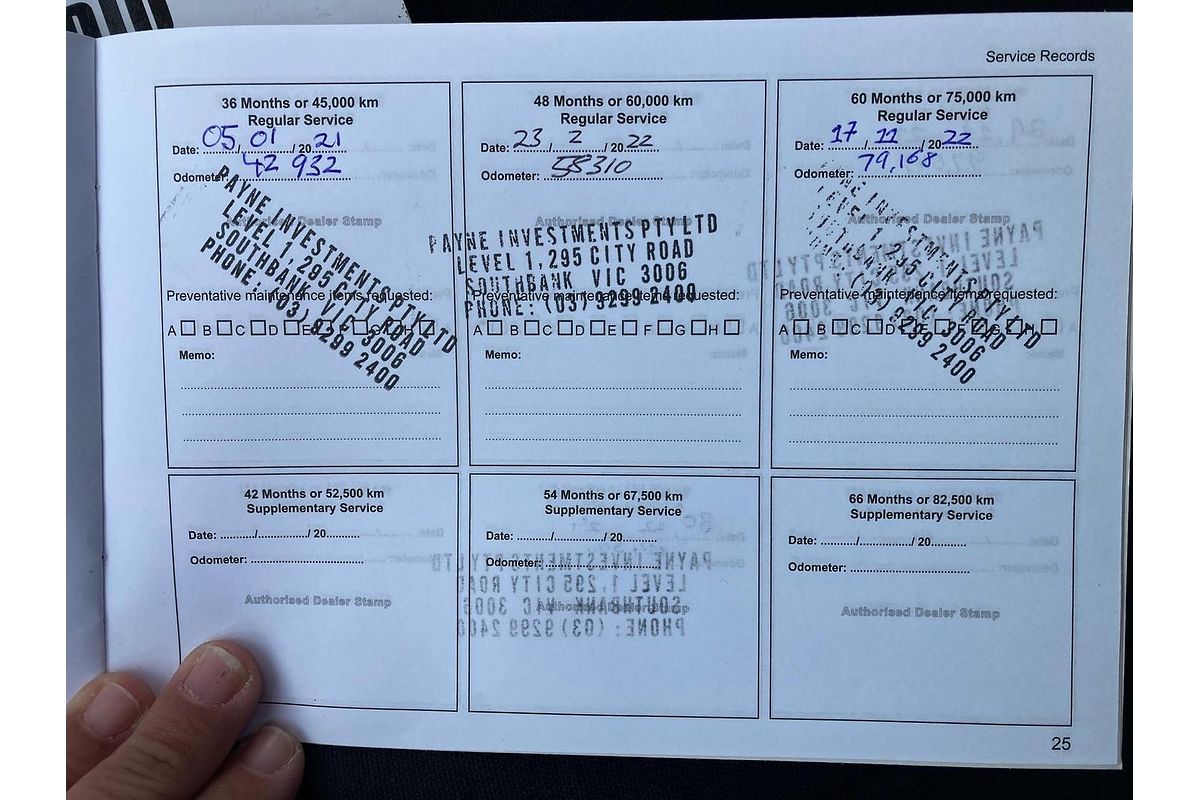 Service Records
36 Months or 45,000 km
Regular Service
Date: 05/01/2021
Odometer: 42 932
Authorised Dealer Stamp
PAYNE INVESTMENTS PTY LTD
LEVEL 1, 295 CITY ROAD
SOUTHBANK VIC 3006
PHONE: (03) 9299 2400
Preventative maintenance items requested:
A B C D E F G H
Memo:
48 Months or 60,000 km
Regular Service
Date: 23/2/2022
Odometer: 58310
Authorised Dealer Stamp
PAYNE INVESTMENTS PTY LTD
LEVEL 1, 295 CITY ROAD
SOUTHBANK VIC 3006
PHONE: (03) 9299 2400
Preventative maintenance items requested:
A B C D E F G H
Memo:
60 Months or 75,000 km
Regular Service
Date: 17/11/2022
Odometer: 79,168
Authorised Dealer Stamp
INVESTMENTS PTY LTD
LEVEL 1, 295 CITY ROAD
SOUTHBANK VIC 3006
PHONE: (03) 9299 2400
Preventative maintenance items requested:
A B C D E F G H
Memo:
42 Months or 52,500 km
Supplementary Service
Date: ........../................/ 20..........
Odometer: ...................................
Authorised Dealer Stamp
54 Months or 67,500 km
Supplementary Service
Date: ........../................/ 20..........
Odometer: ...................................
Authorised Dealer Stamp
66 Months or 82,500 km
Supplementary Service
Date: ........../................/ 20..........
Odometer: ...................................
Authorised Dealer Stamp
25